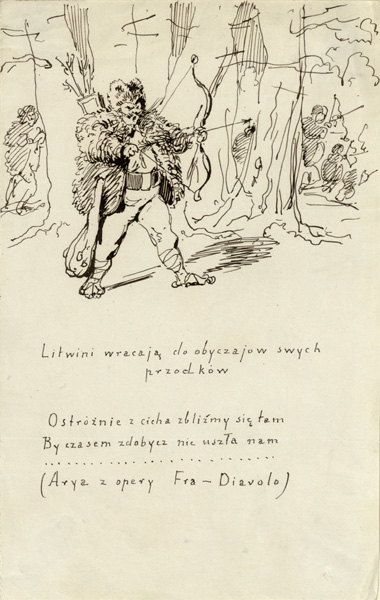 Litwini wracają do obyczajow swych
przodków
Ostróżnie z cicha zbliźmy się tam
By czasem zdobycz nie uszła nam
..............................
(Arya z opery Fra-Diavolo)